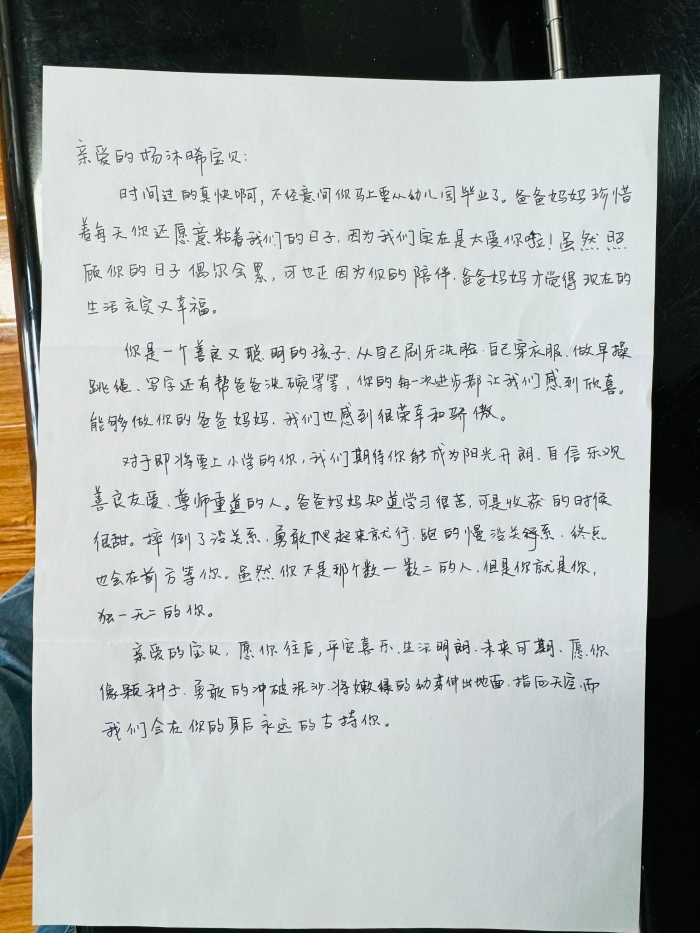 亲爱的杨沐晞宝贝:
时间过的真快啊,不经意间你马上要从幼儿园毕业了。爸爸妈妈珍惜
着每天你还愿意粘着我们的日子,因为我们实在是太爱你啦!虽然照
顾你的日子偶尔会累,可也正因为你的陪伴、爸爸妈妈才觉得现在的
生活充实又幸福。
你是一个善良又聪明的孩子、从自己刷牙洗脸、自己穿衣服、做早操
跳绳、写字还有帮爸爸洗碗等等,你的每一次进步都让我们感到欣喜。
能够做你的爸爸妈妈、我们也感到很荣幸和骄傲。
对于即将要上小学的你,我们期待你能成为阳光开朗、自信乐观
善良友爱、尊师重道的人。爸爸妈妈知道学习很苦,可是收获的时候
很甜。摔倒了没关系、勇敢爬起来就行、跑的慢没关系、终点
也会在前方等你。虽然你不是那个数一数二的人,但是你就是你,
独一无二的你。
亲爱的宝贝,愿你往后,平安喜乐、生活明朗、未来可期、愿你
像颗种子、勇敢的冲破泥沙、将嫩绿的幼芽伸出地面、指向天空,而
我们会在你的身后永远的支持你。